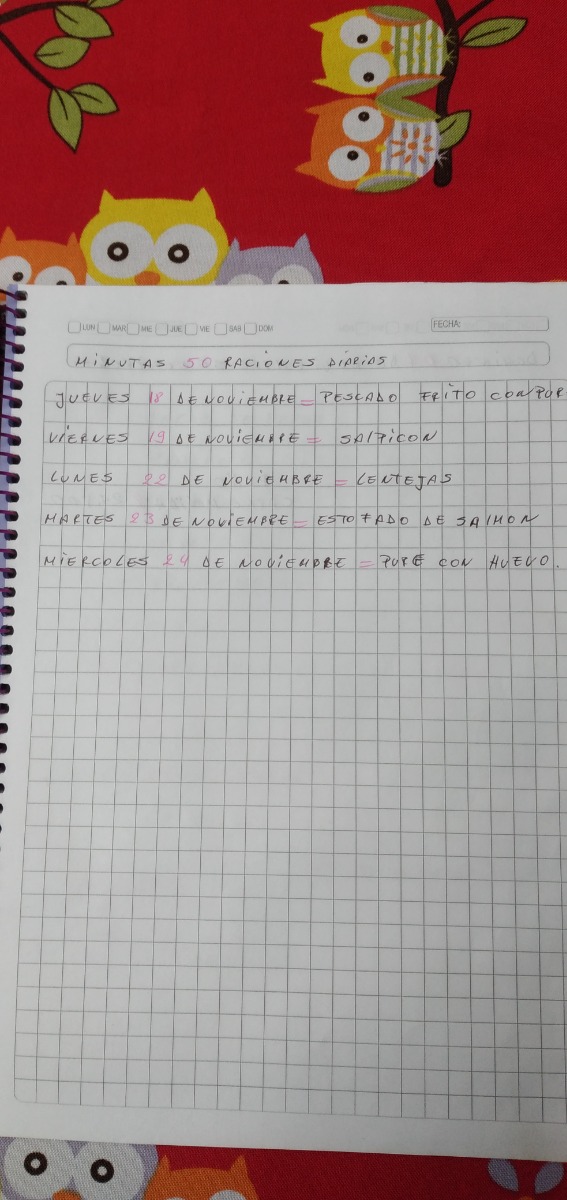 LUN MAR MIE JUE VIE SAB DOM FECHA:
MINUTAS 50 RACIONES DIARIAS
JUEVES 18 DE NOVIEMBRE = PESCADO FRITO CON PUR
VIERNES 19 DE NOVIEMBRE = SALPICON
LUNES 22 DE NOVIEMBRE = LENTEJAS
MARTES 23 DE NOVIEMBRE = ESTOFADO DE SALMON
MIERCOLES 24 DE NOVIEMBRE = PURE CON HUEVO.